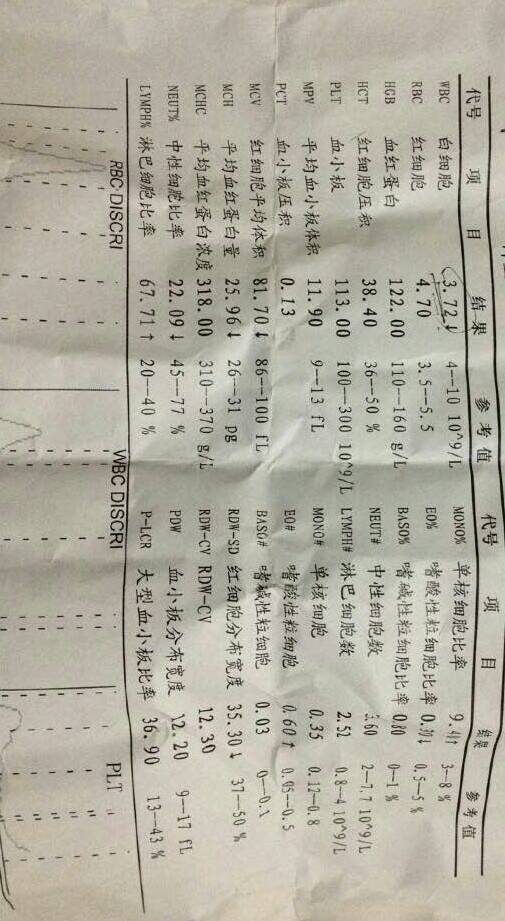 代号 项 目 结果 参考值 代号 项 目 结果 参考值
WBC 白细胞 3.72↓ 4--10 10^9/L MONO% 单核细胞比率 9.41↑ 3--8 %
RBC 红细胞 4.70 3.5--5.5 EO% 嗜酸性粒细胞比率 0.5--5 %
HGB 血红蛋白 122.00 110--160 g/L BASO% 嗜碱性粒细胞比率 0.80 0--1 %
HCT 红细胞压积 38.40 36--50 % NEUT# 中性细胞数 2--7.7 10^9/L
PLT 血小板 113.00 100--300 10^9/L LYMPH# 淋巴细胞数 2.52 0.8--4 10^9/L
MPV 平均血小板体积 11.90 9--13 fL MONO# 单核细胞 0.35 0.12--0.8
PCT 血小板压积 0.13 EO# 嗜酸性粒细胞 0.60↑ 0.05--0.5
MCV 红细胞平均体积 81.70↓ 86--100 fL BASO# 嗜碱性粒细胞 0.03 0--0.1
MCH 平均血红蛋白量 25.96↓ 26--31 pg RDW-SD 红细胞分布宽度 35.30↓ 37--50 %
MCHC 平均血红蛋白浓度 318.00 310--370 g/L RDW-CV RDW-CV 12.30
NEUT% 中性细胞比率 22.09↓ 45--77 % PDW 血小板分布宽度 12.20 9--17 fL
LYMPH% 淋巴细胞比率 67.71↑ 20--40 % P-LCR 大型血小板比率 36.90 13--43 %
RBC DISCRI WBC DISCRI PLT